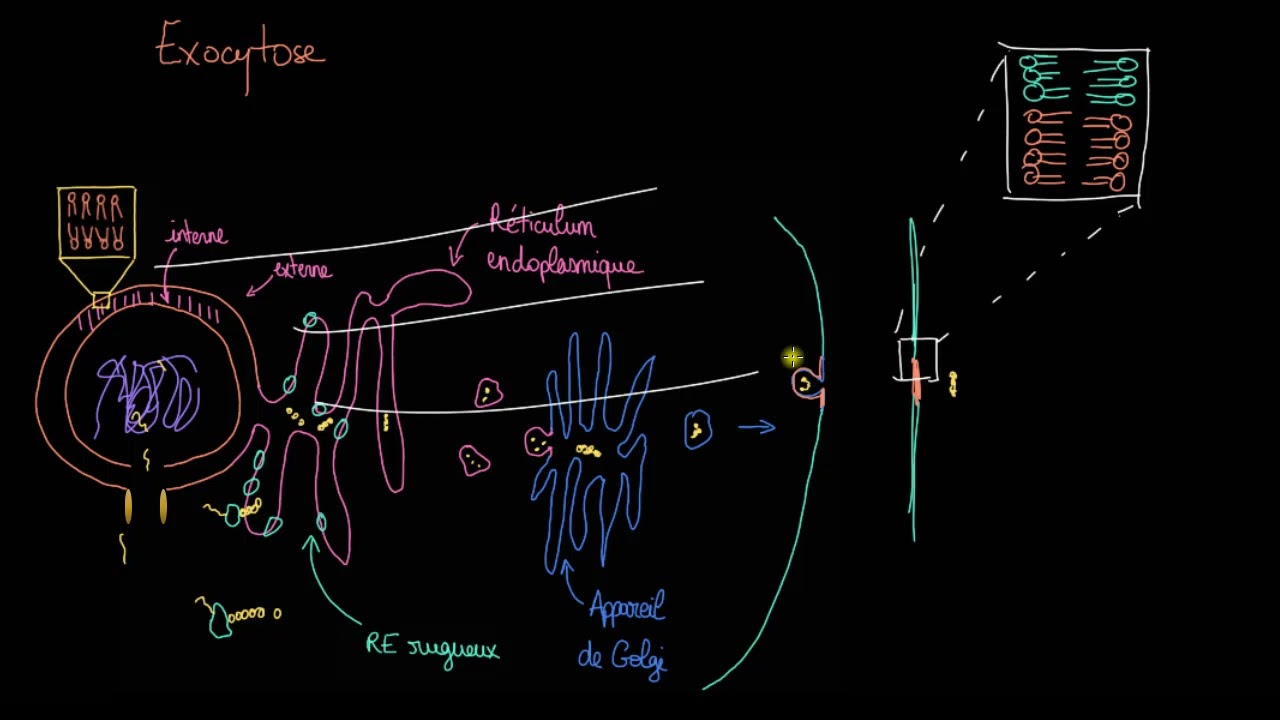 Exocytose
interne
externe
Réticulum
endoplasmique
Appareil
de Golgi
RE rugueux